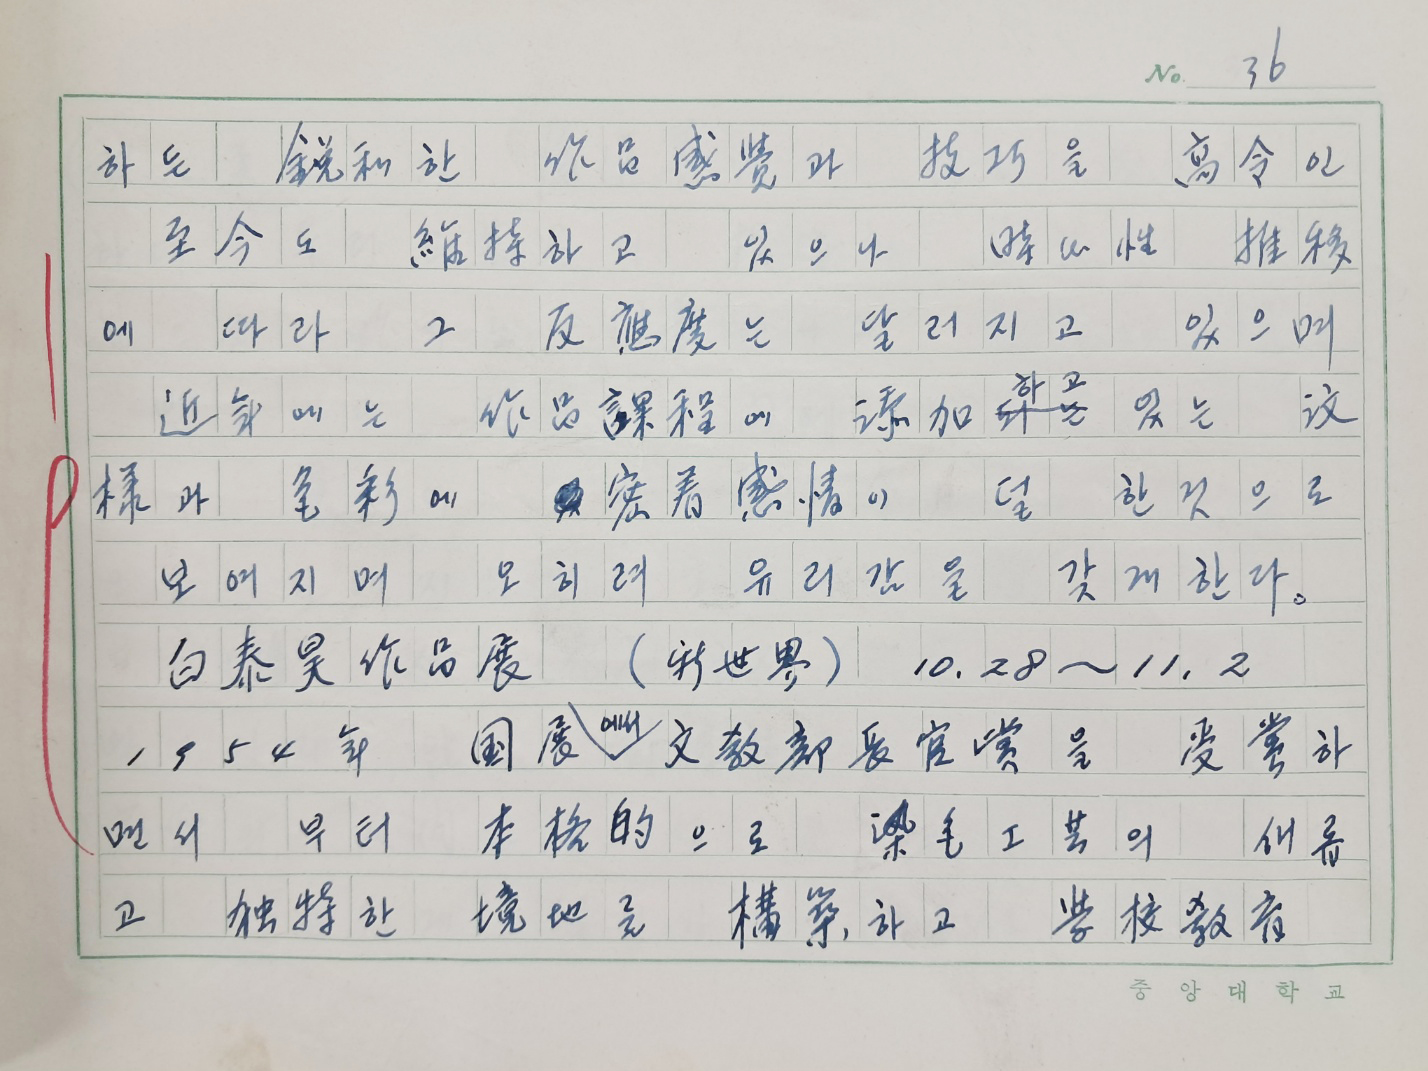 No. 36
하는 銳利한 作品感覺과 技巧을 高令인
至今도 維持하고 있으나 時山性 推移
에 따라 그 反應度는 달러지고 있으며
近年에는 作品課程에 添加하고 있는 汶
樣과 色彩에 密着感情이 덜 한것으로
보여지며 오히려 유리감을 갖게한다。
白泰昊作品展 (新世界) 10.28〜11.2
1954年 国展에서 文敎部長官賞을 受賞하
면서 부터 本格的으로 染毛工芸의 새류
고 独特한 境地를 構築하고 学校敎育
중앙대학교